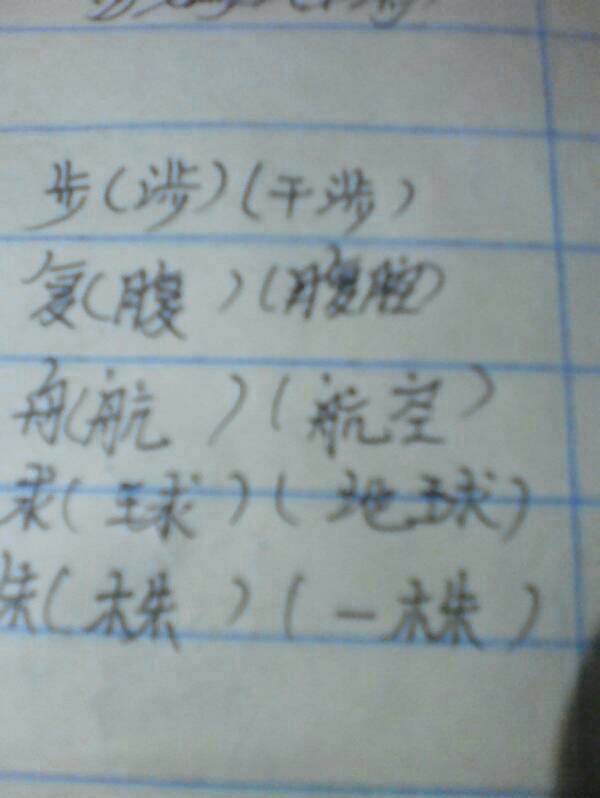 步(涉)(干涉)
复(腹)(腹腔)
舟(航)(航空)
求(球)(地球)
朱(株)(一株)